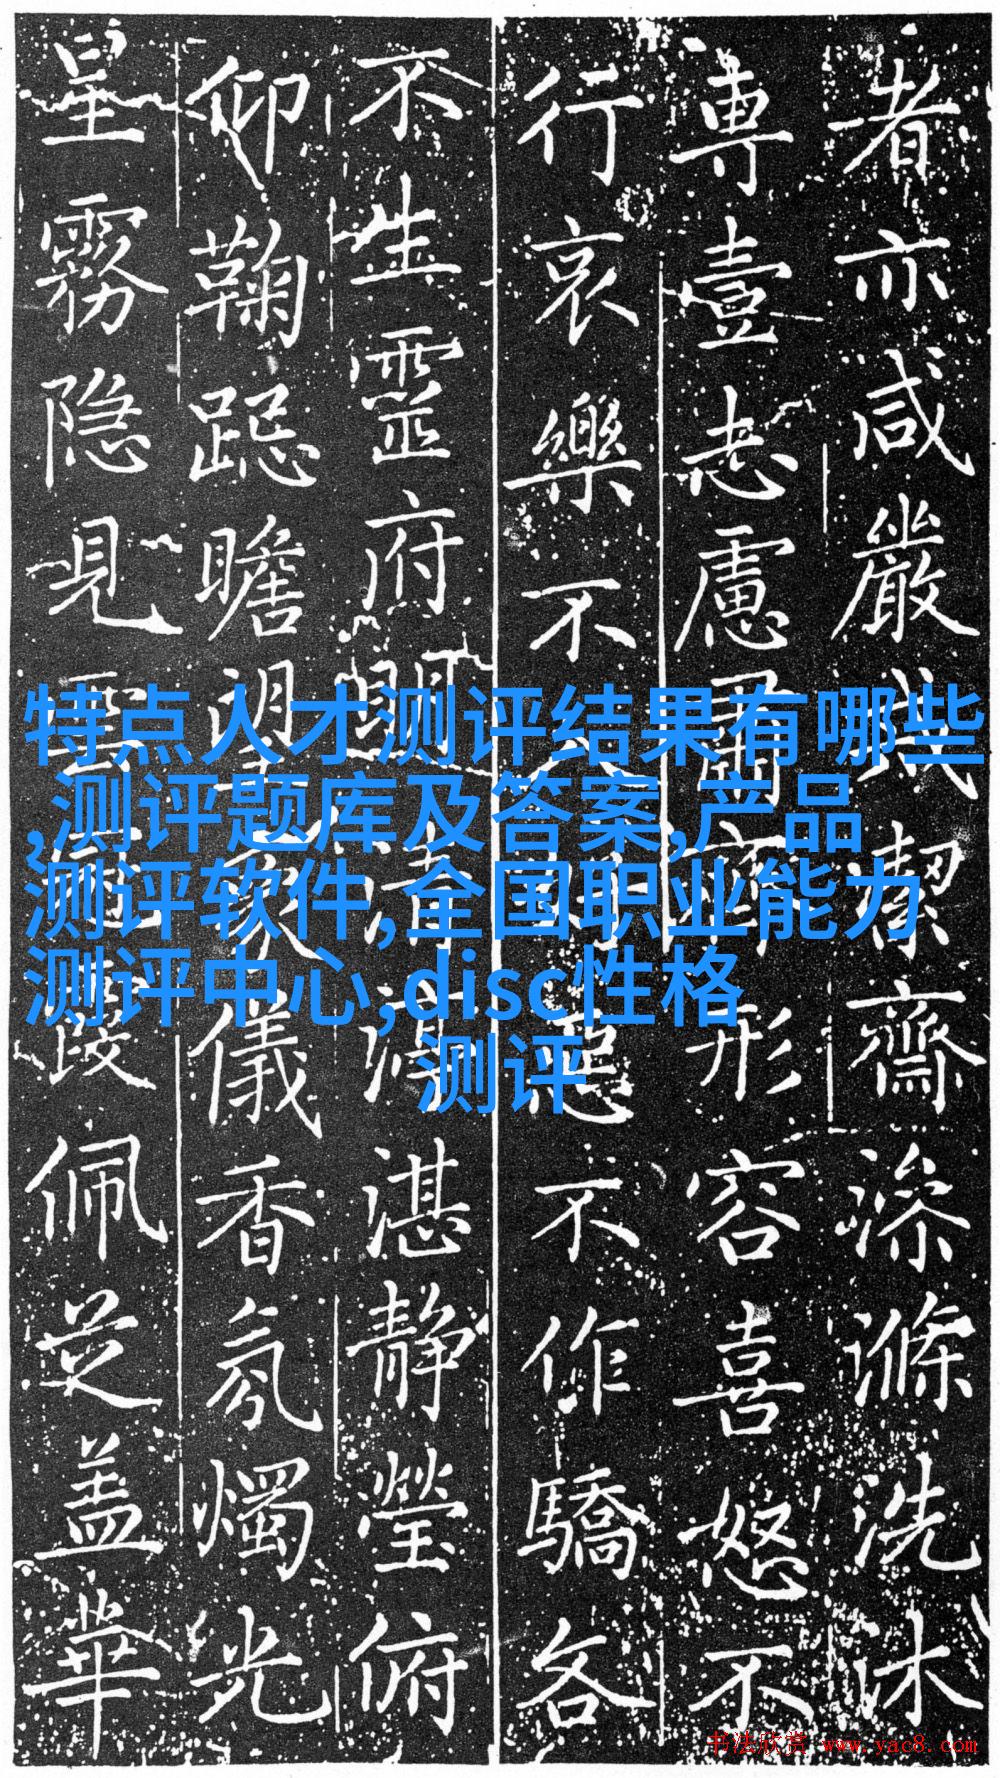 者亦咸嚴潔齋滌洗沐
専壹志慮肅齊形容喜怒不
行哀樂不惡不作驕各
不生靈府湛静瑩俯
仰鞠跽瞻望儀香氛燭光
星霧隐見雲佩芝盖華
特点人才测评结果有哪些
,测评题库及答案,产品
测评软件,全国职业能力
测评中心,disc性格
测评
书法欣赏 www.yac8.com